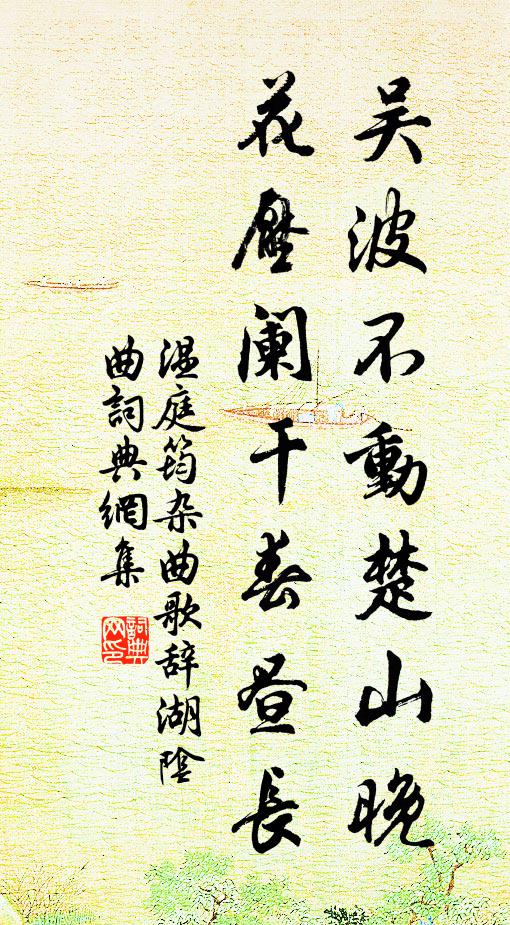 吴波不動楚山晚
花壓阑干春昼長
温庭筠杂曲歌辞湖陰
曲詞典網集
詞典
网印